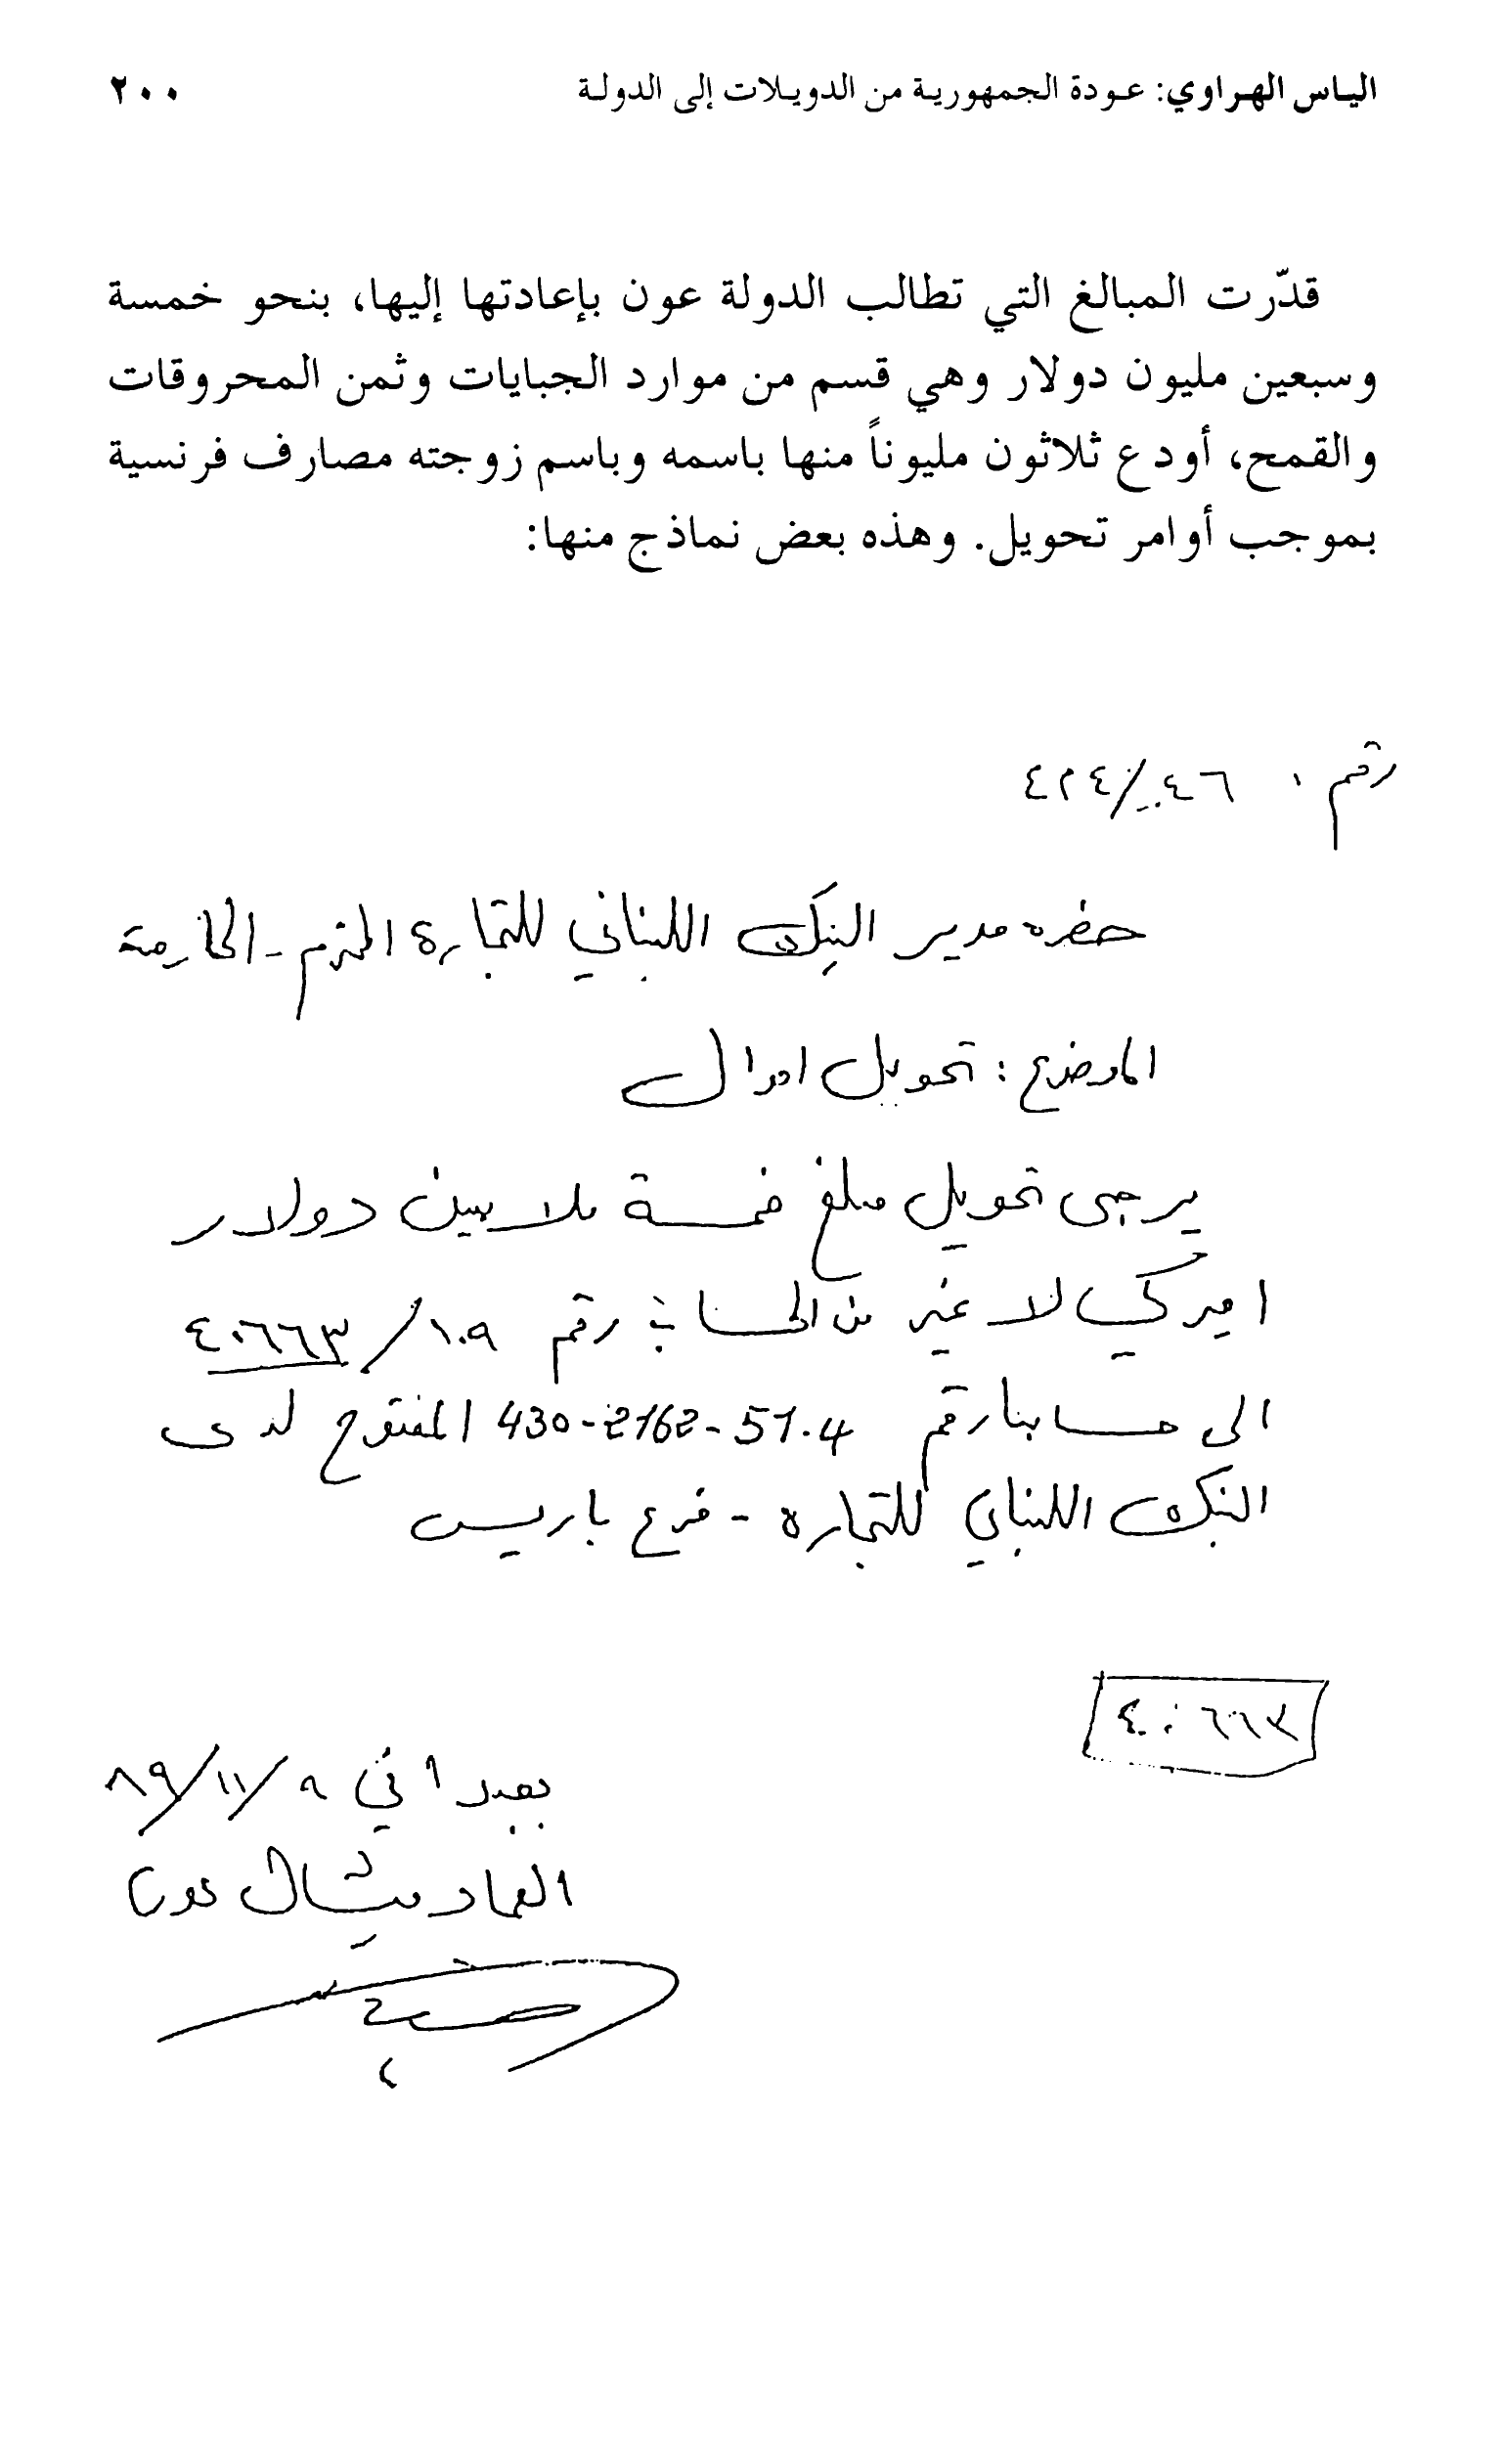 الياس الهراوي: عودة الجمهورية من الدويلات إلى الدولة ٢٠٠
قدّرت المبالغ التي تطالب الدولة عون بإعادتها إليها، بنحو خمسة
وسبعين مليون دولار وهي قسم من موارد الجبايات وثمن المحروقات
والقمح، أودع ثلاثون مليوناً منها باسمه وباسم زوجته مصارف فرنسية
بموجب أوامر تحويل. وهذه بعض نماذج منها:
رقم
حضرة مدير البنك اللبناني للتجارة المحترم - الحازمية
الموضوع : تحويل اموال
يرجى تحويل مبلغ خمسة ملايين دولار
اميركي لا غير من الحساب رقم ١٠٩/٤٠٦٦٣
الى حسابنا رقم 430-2162-51.4 المفتوح لدى
البنك اللبناني للتجارة - فرع باريس
٤٠٦٦٣
بعبدا في ٩/١١/٨٩
العماد ميشال عون